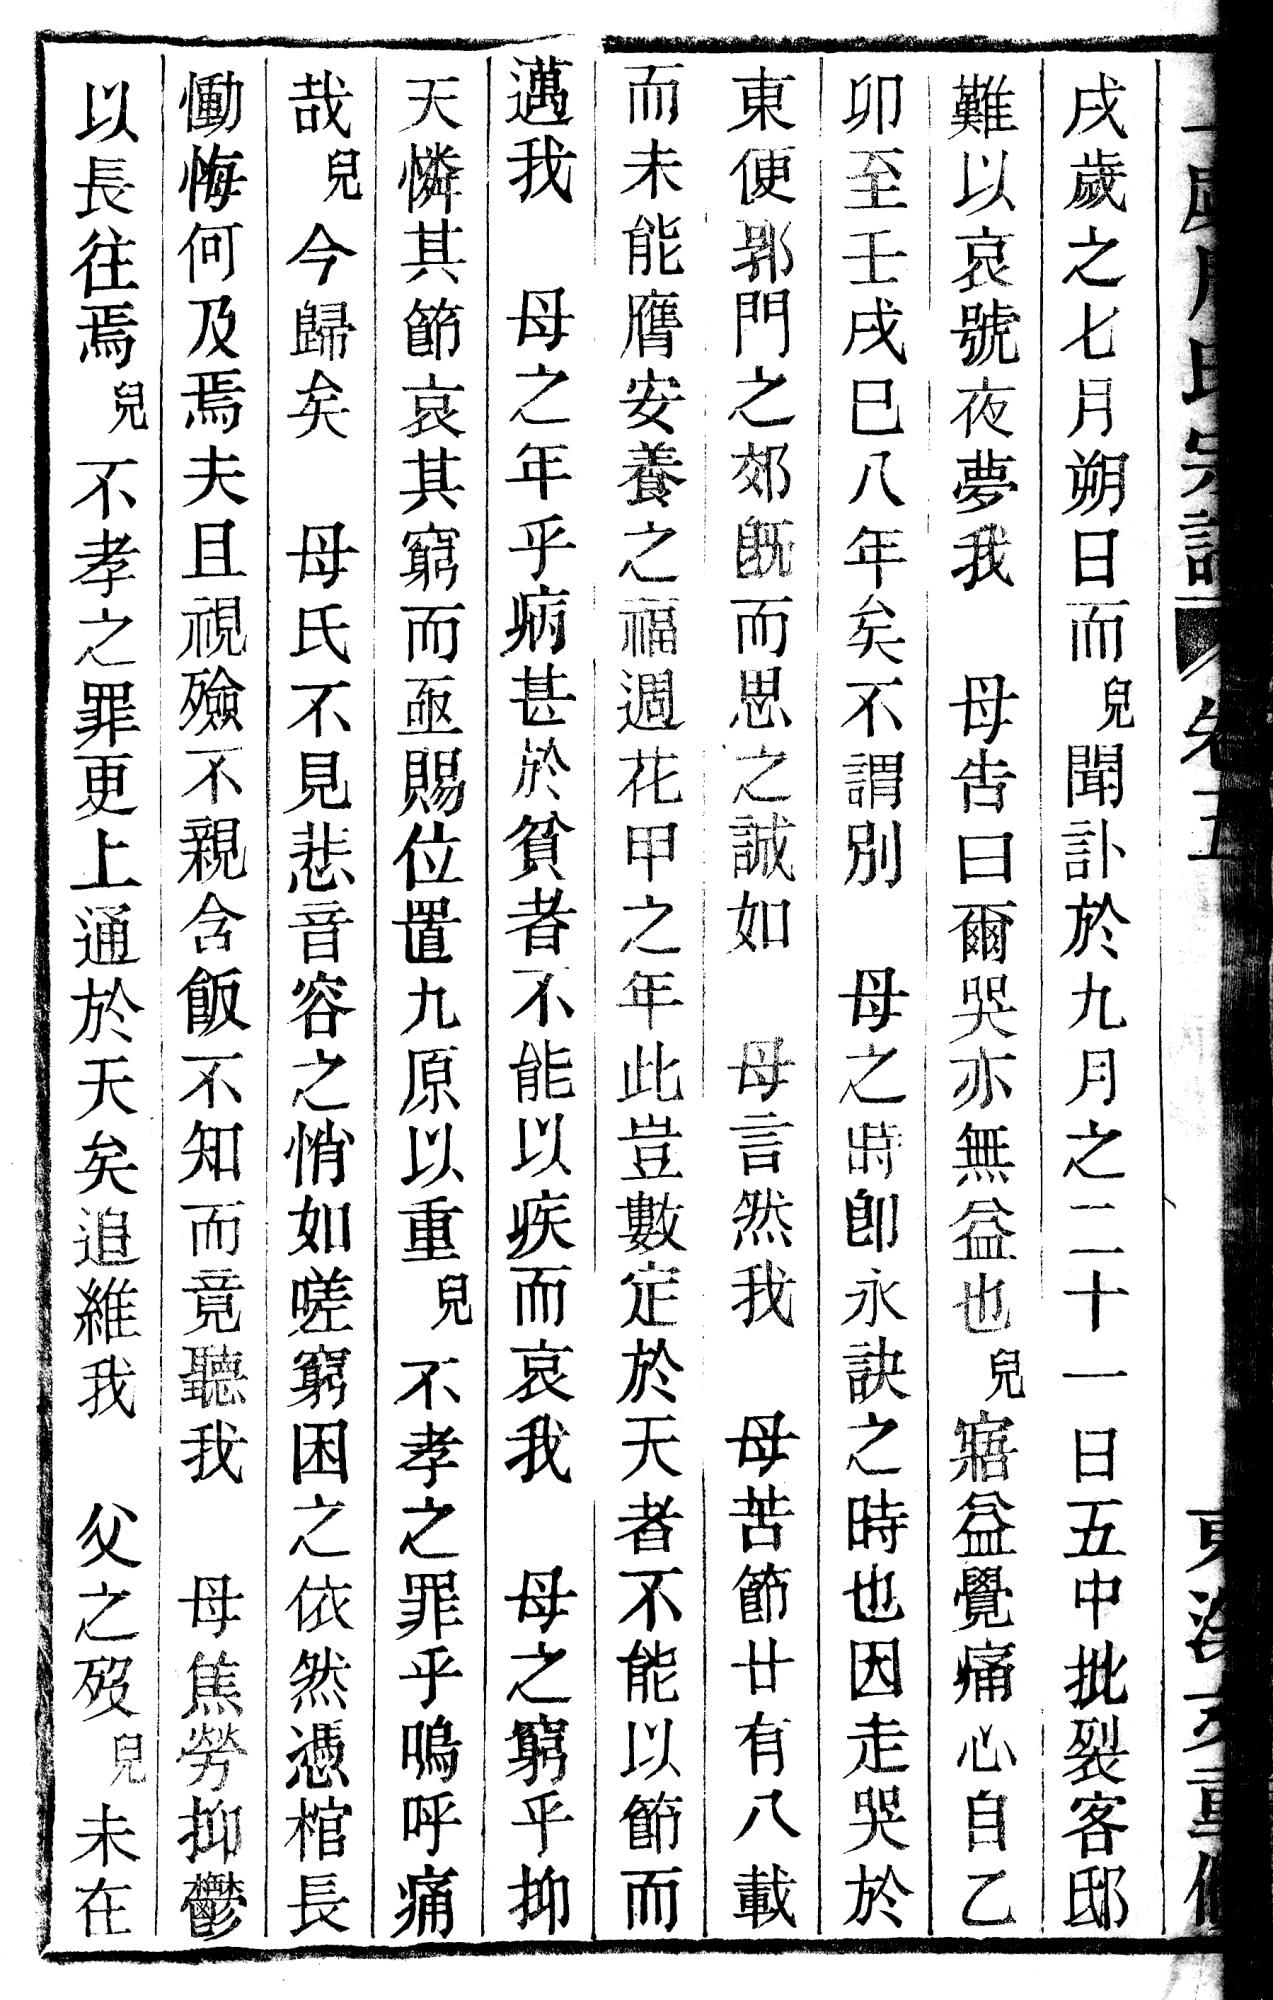 戌歲之七月朔日而兒聞訃於九月之二十一日五中批裂客邸
難以哀號夜夢我　母告曰爾哭亦無益也兒寤益覺痛心自乙
卯至壬戌巳八年矣不謂別　母之時卽永訣之時也因走哭於
東便郭門之郊旣而思之誠如　母言然我　母苦節廿有八載
而未能膺安養之福週花甲之年此豈數定於天者不能以節而
邁我　母之年乎病甚於貧者不能以疾而哀我　母之窮乎抑
天憐其節哀其窮而亟賜位置九原以重兒不孝之罪乎嗚呼痛
哉兒今歸矣　母氏不見悲音容之悄如嗟窮困之依然憑棺長
慟悔何及焉夫且視殮不親含飯不知而竟聽我　母焦勞抑鬱
以長往焉兒不孝之罪更上通於天矣追維我　父之歿兒未在